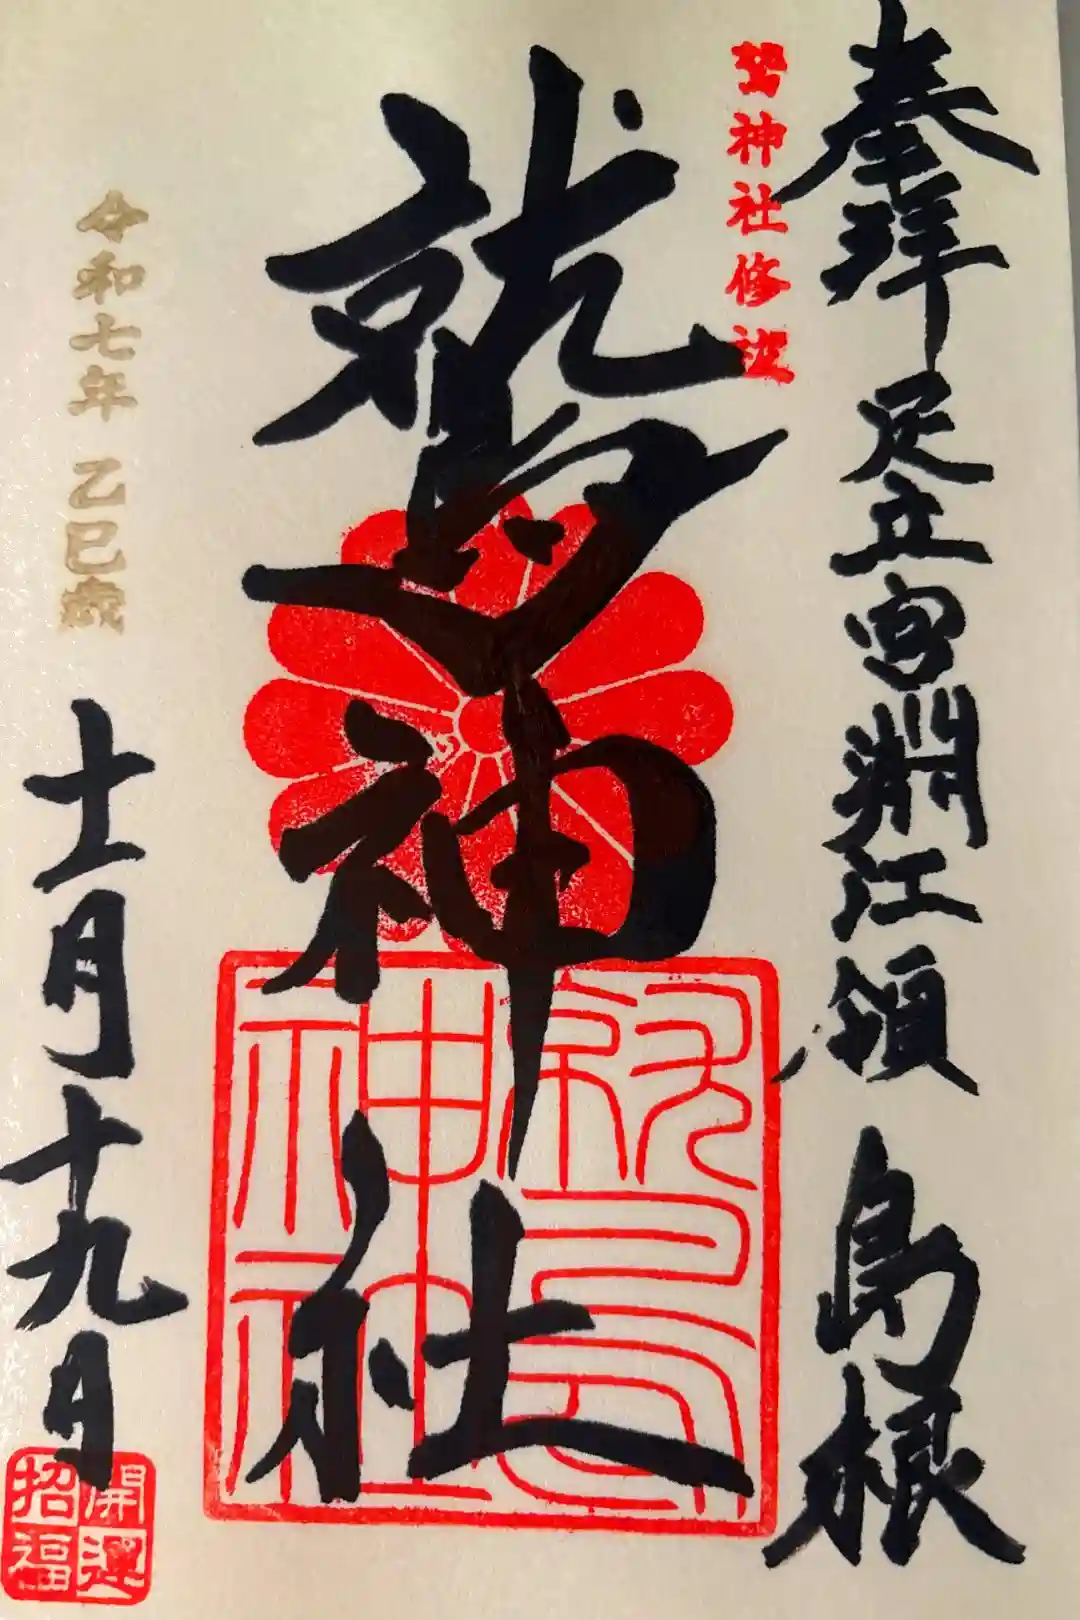 奉拝 足立宮淵江領 島根
鷲神社修
鷲神社
鷲神社
令和七年 乙巳歳
十一月十九日
開運
招福